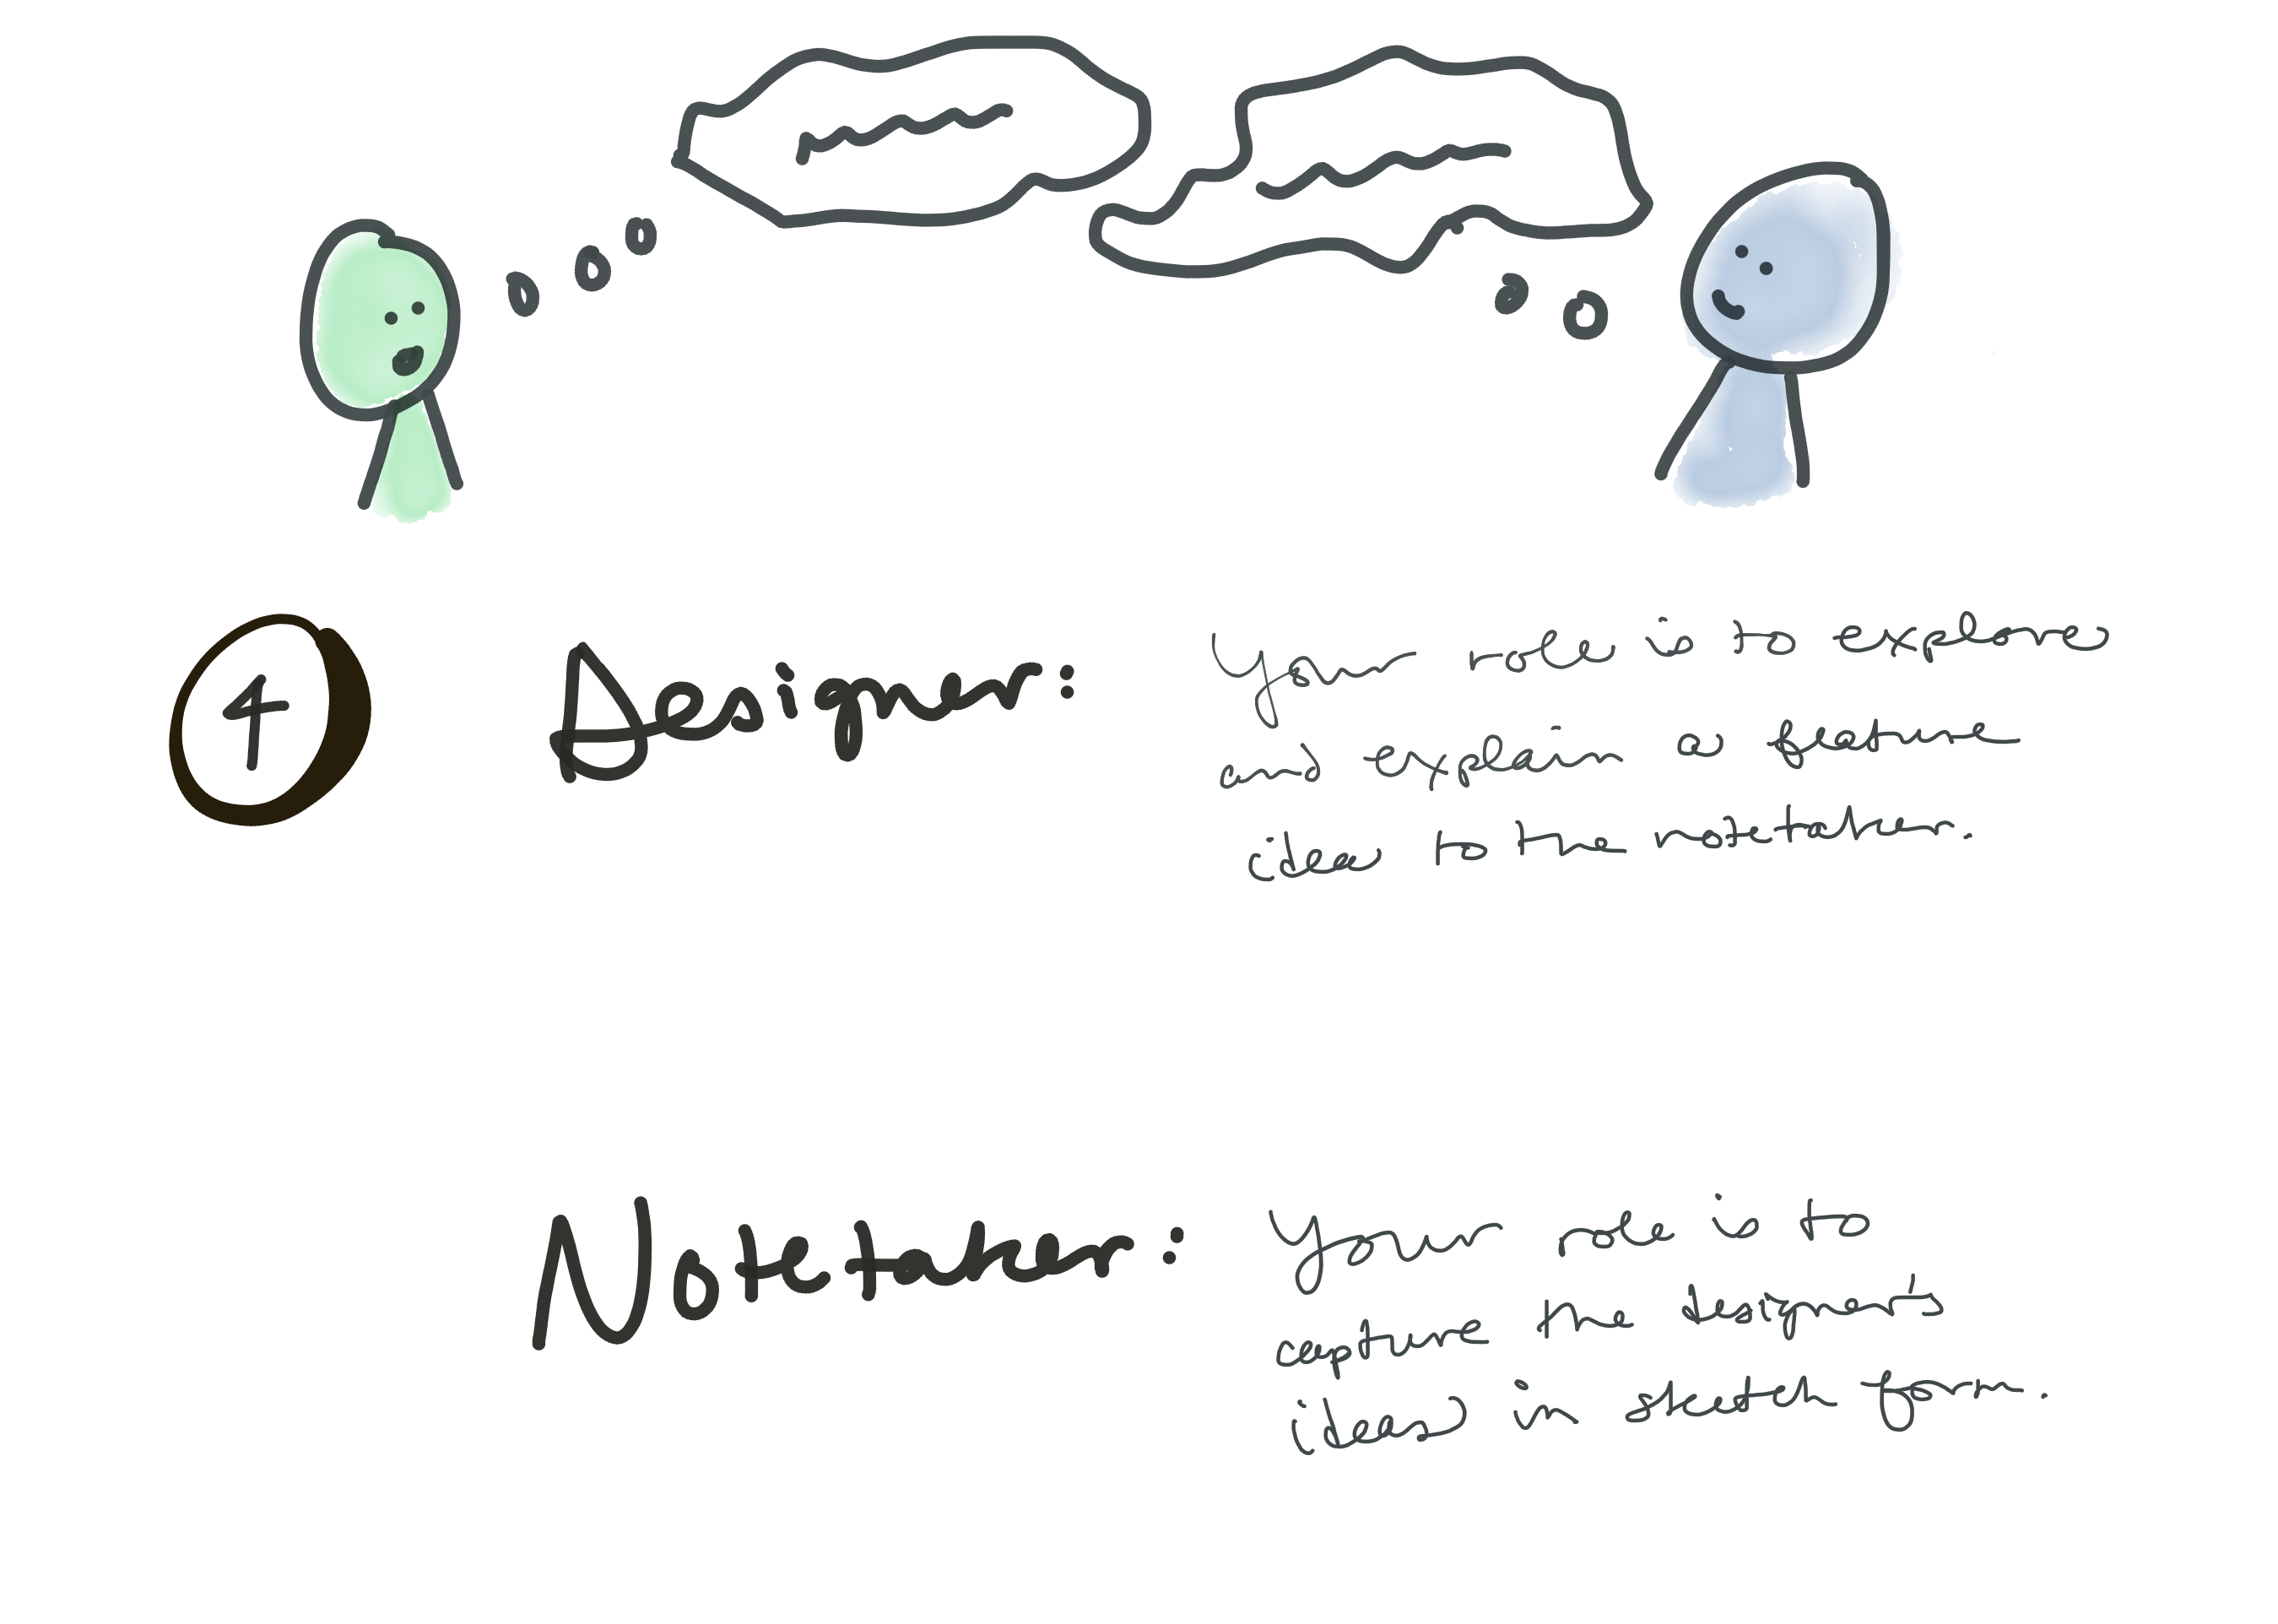 4
Designer: Your role is to explore
and explain a feature
idea to the notetaker.
Notetaker: Your role is to
capture the designer's
ideas in sketch form.